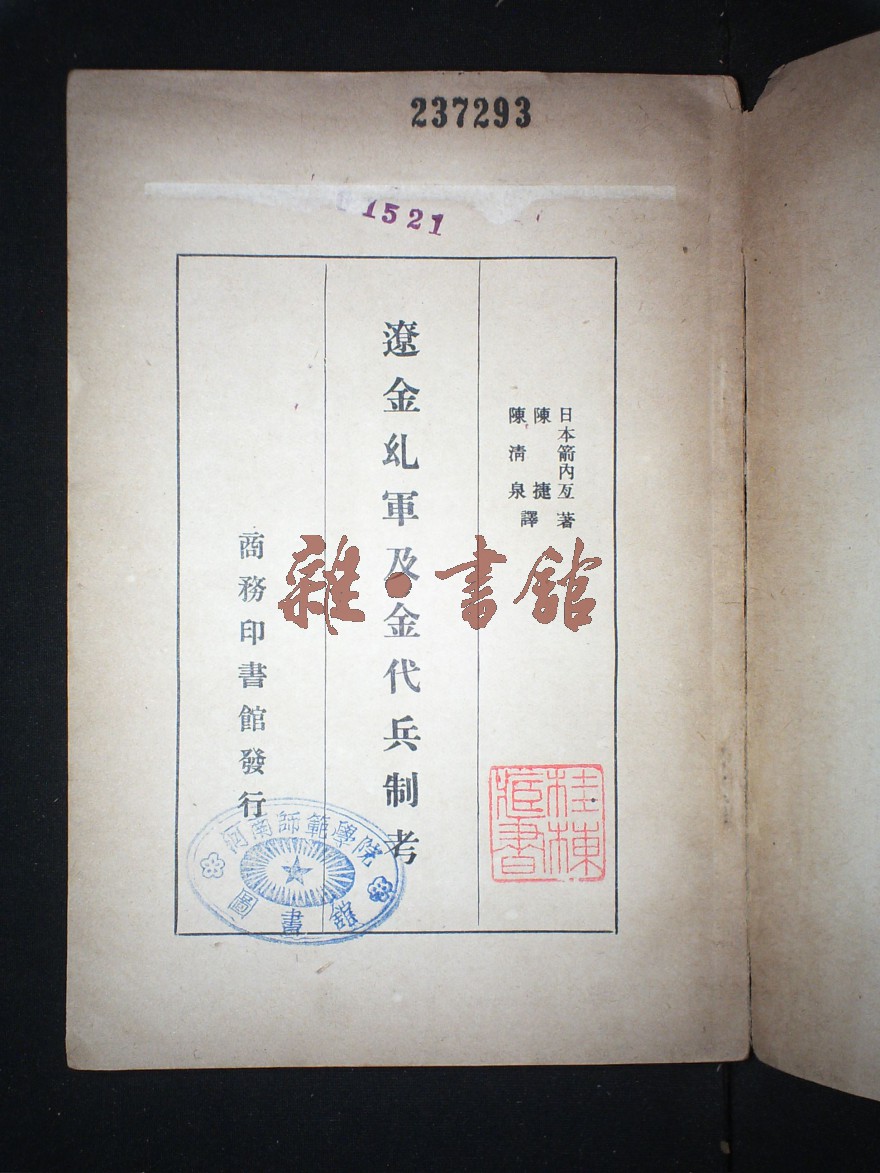 237293
1521
日本箭内亙著
陳捷
陳清泉譯
遼金乣軍及金代兵制考
商務印書館發行
雜·書館
桂棟
藏書
河南師範學院
圖書館